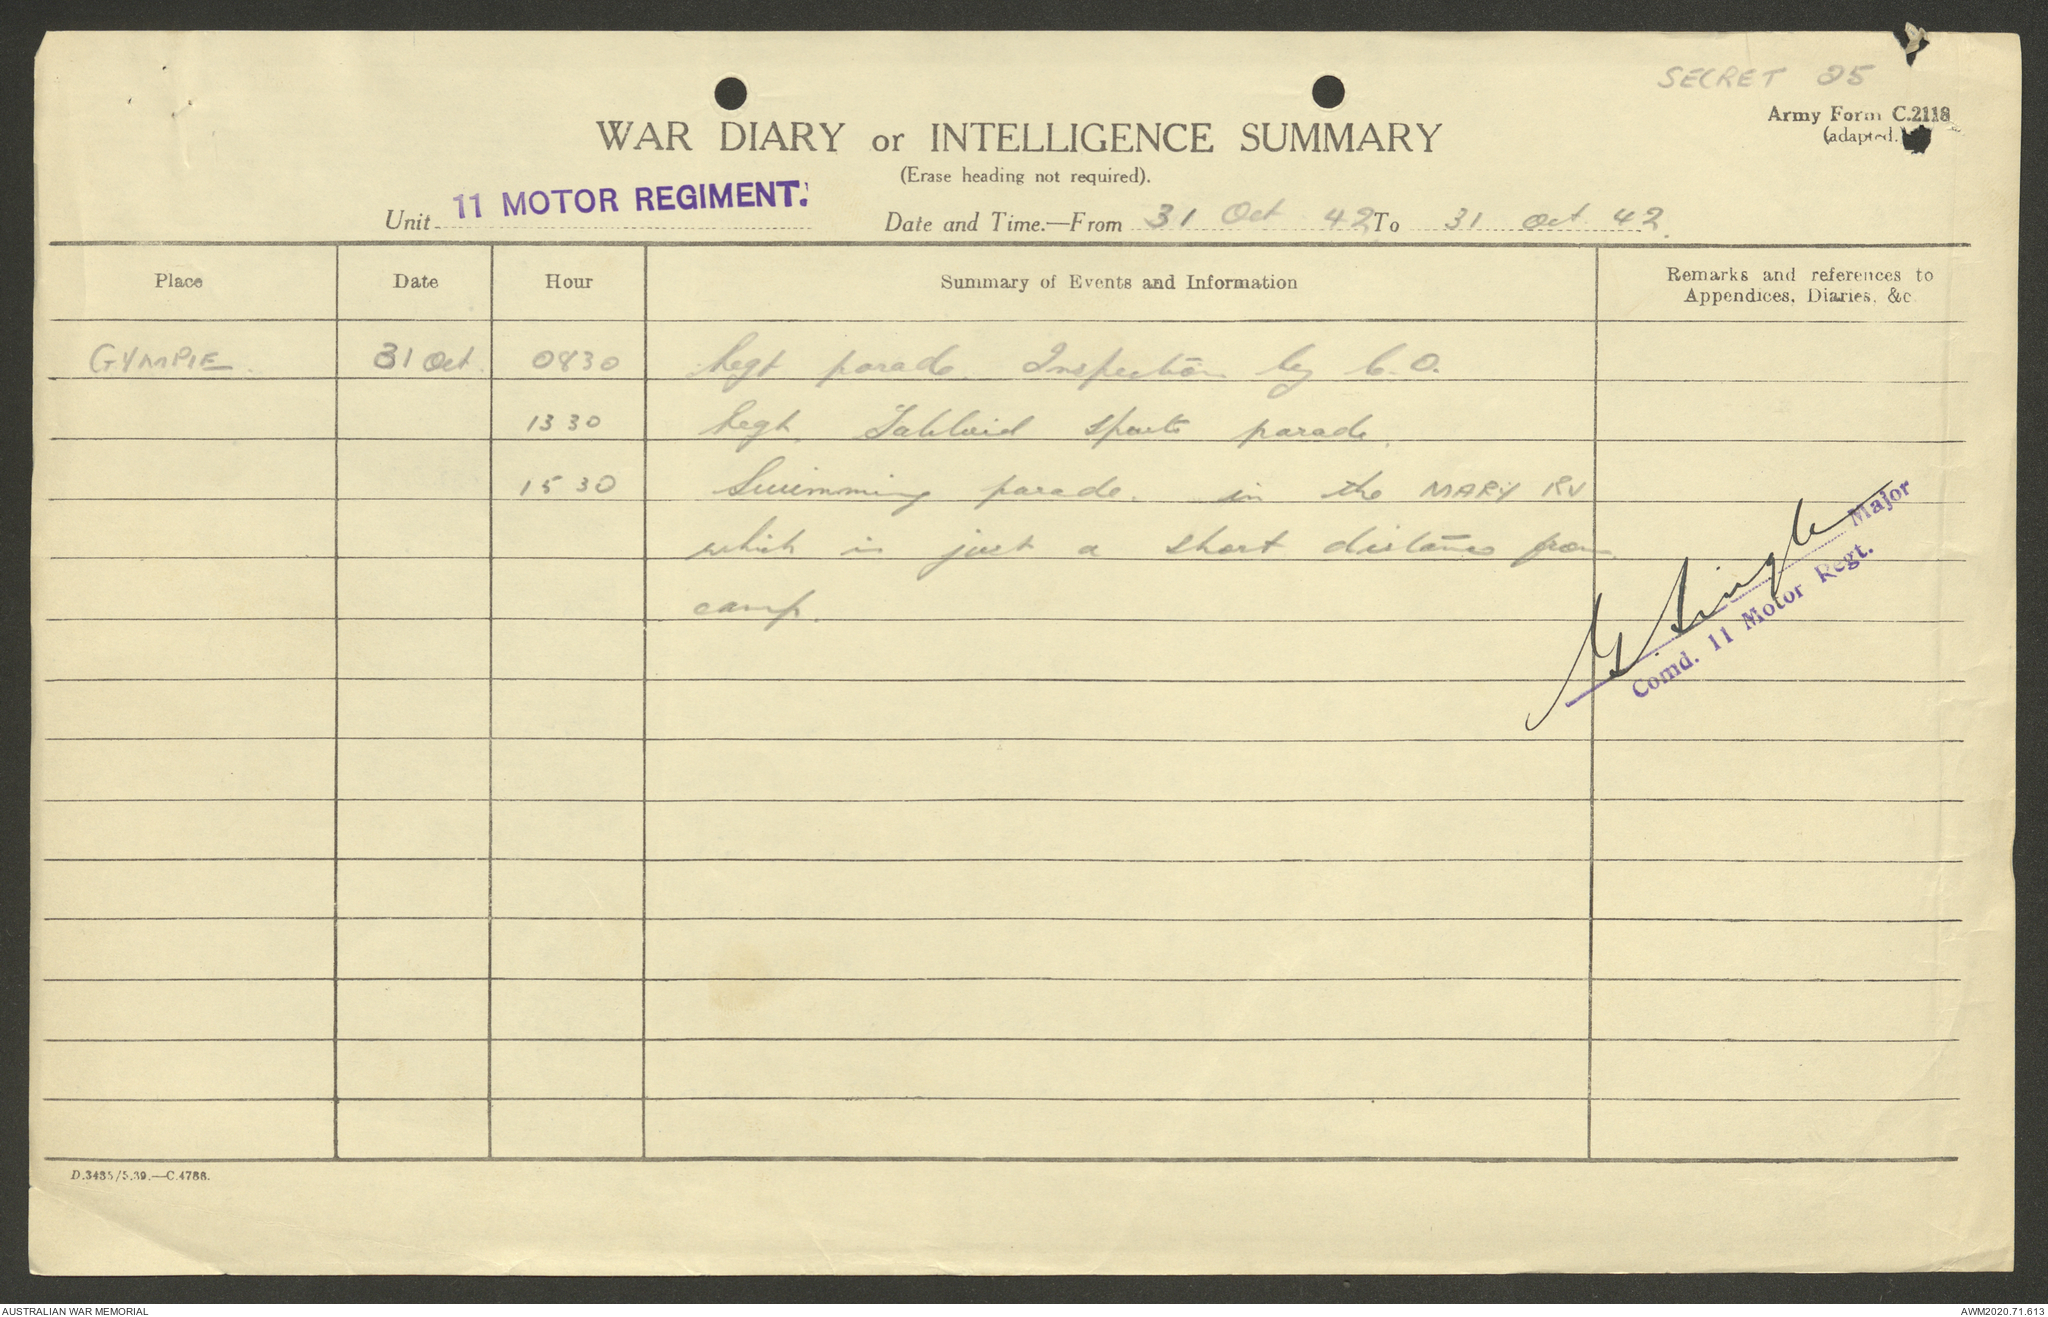 SECRET 25
Army Form C.2118
(adapted.)
WAR DIARY or INTELLIGENCE SUMMARY
(Erase heading not required).
Unit 11 MOTOR REGIMENT. Date and Time.—From 31 Oct 42 To 31 Oct 42.
Place Date Hour Summary of Events and Information Remarks and references to Appendices, Diaries, &c
GYMPIE. 31 Oct. 0830 Regt parade. Inspection by C.O.
1330 Regt. Tabloid sports parade.
1530 Swimming parade. in the MARY RV
which is just a short distance from
camp.
Major
Comd. 11 Motor Regt.
D.3435/5.39.—C.4788.
AUSTRALIAN WAR MEMORIAL AWM2020.71.613